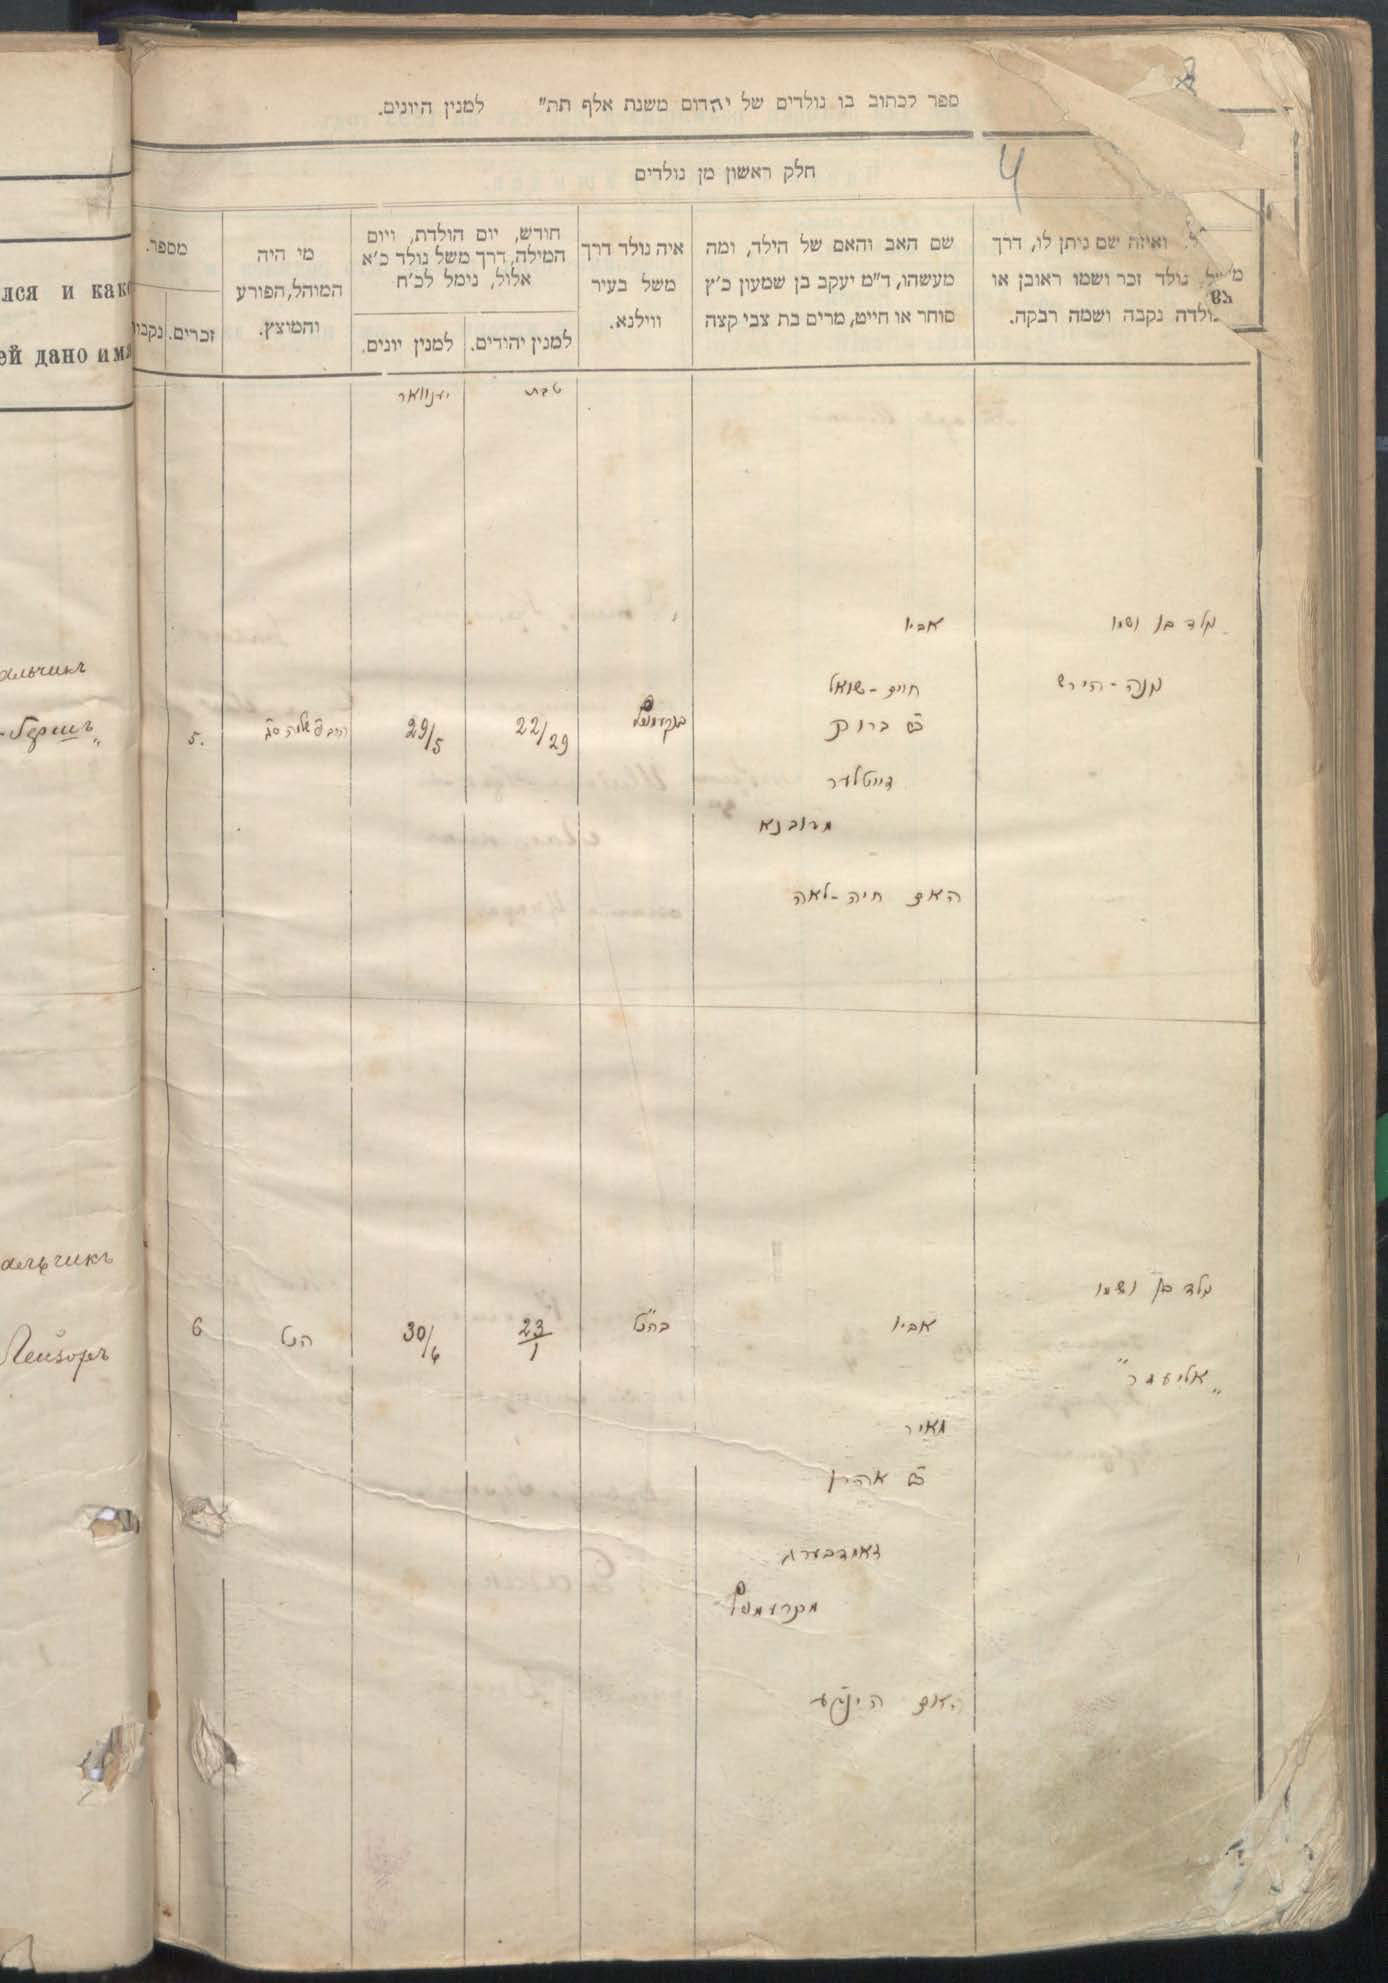 ספר לכתוב בו נולדים של יהדום משנת אלף תת״ למנין היונים.
4
חלק ראשון מן נולדים
ואיזה שם ניתן לו, דרך
נולד זכר ושמו ראובן או
נולדה נקבה ושמה רבקה.
שם האב והאם של הילד, ומה
מעשהו, ד״מ יעקב בן שמעון כ״ץ
סוחר או חייט, מרים בת צבי קצה
איה נולד דרך
משל בעיר
ווילנא.
חודש, יום הולדת, ויום
המילה, דרך משל נולד כ׳א
אלול, נימל לכ׳ח
למנין יהודים.
למנין יונים.
מי היה
המוהל, הפורע
והמוצץ.
מספר.
זכרים.
лся и како
ей дано имя
טבת
יענוואר
ילד בן ושמו
מנה-הירש
אביו
חיים-שואל
ב״ר ברוך
דייטלער
מרובנא
האם חיה-לאה
22/29
29/5
5.
альчикъ
-Гершъ„
ילד בן ושמו
„אליעזר״
אביו
מאיר
ב״ר אהרן
האם הינדע
23/1
30/6
הנ״ל
6
альчикъ
Лейзоръ